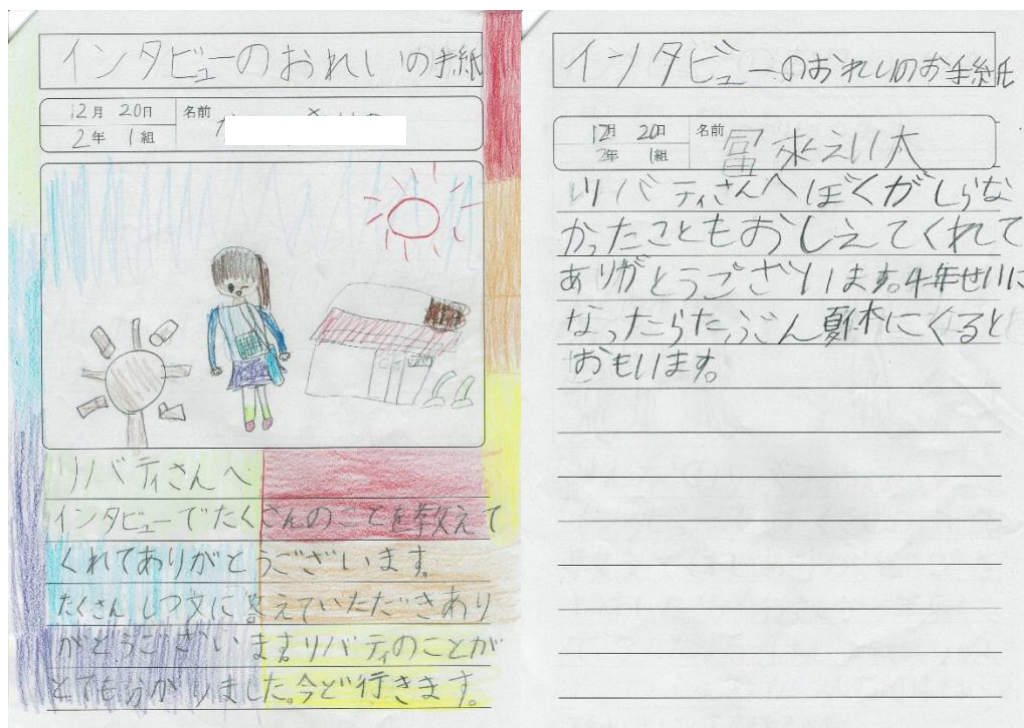 インタビューのおれいの手紙
12月 20日 名前
2年 1組
リバティさんへ
インタビューでたくさんのことを教えて
くれてありがとうございます。
たくさんしつ文に答えていただきあり
がとうございますリバティのことが
とても分かりました。今ど行きます。
インタビューのおれいのお手紙
12月 20日 名前 冨来えい太
2年 1組
リバティさんへぼくがしらな
かったこともおしえてくれて
ありがとうございます。4年せいに
なったらたぶん夏休にくると
おもいます。